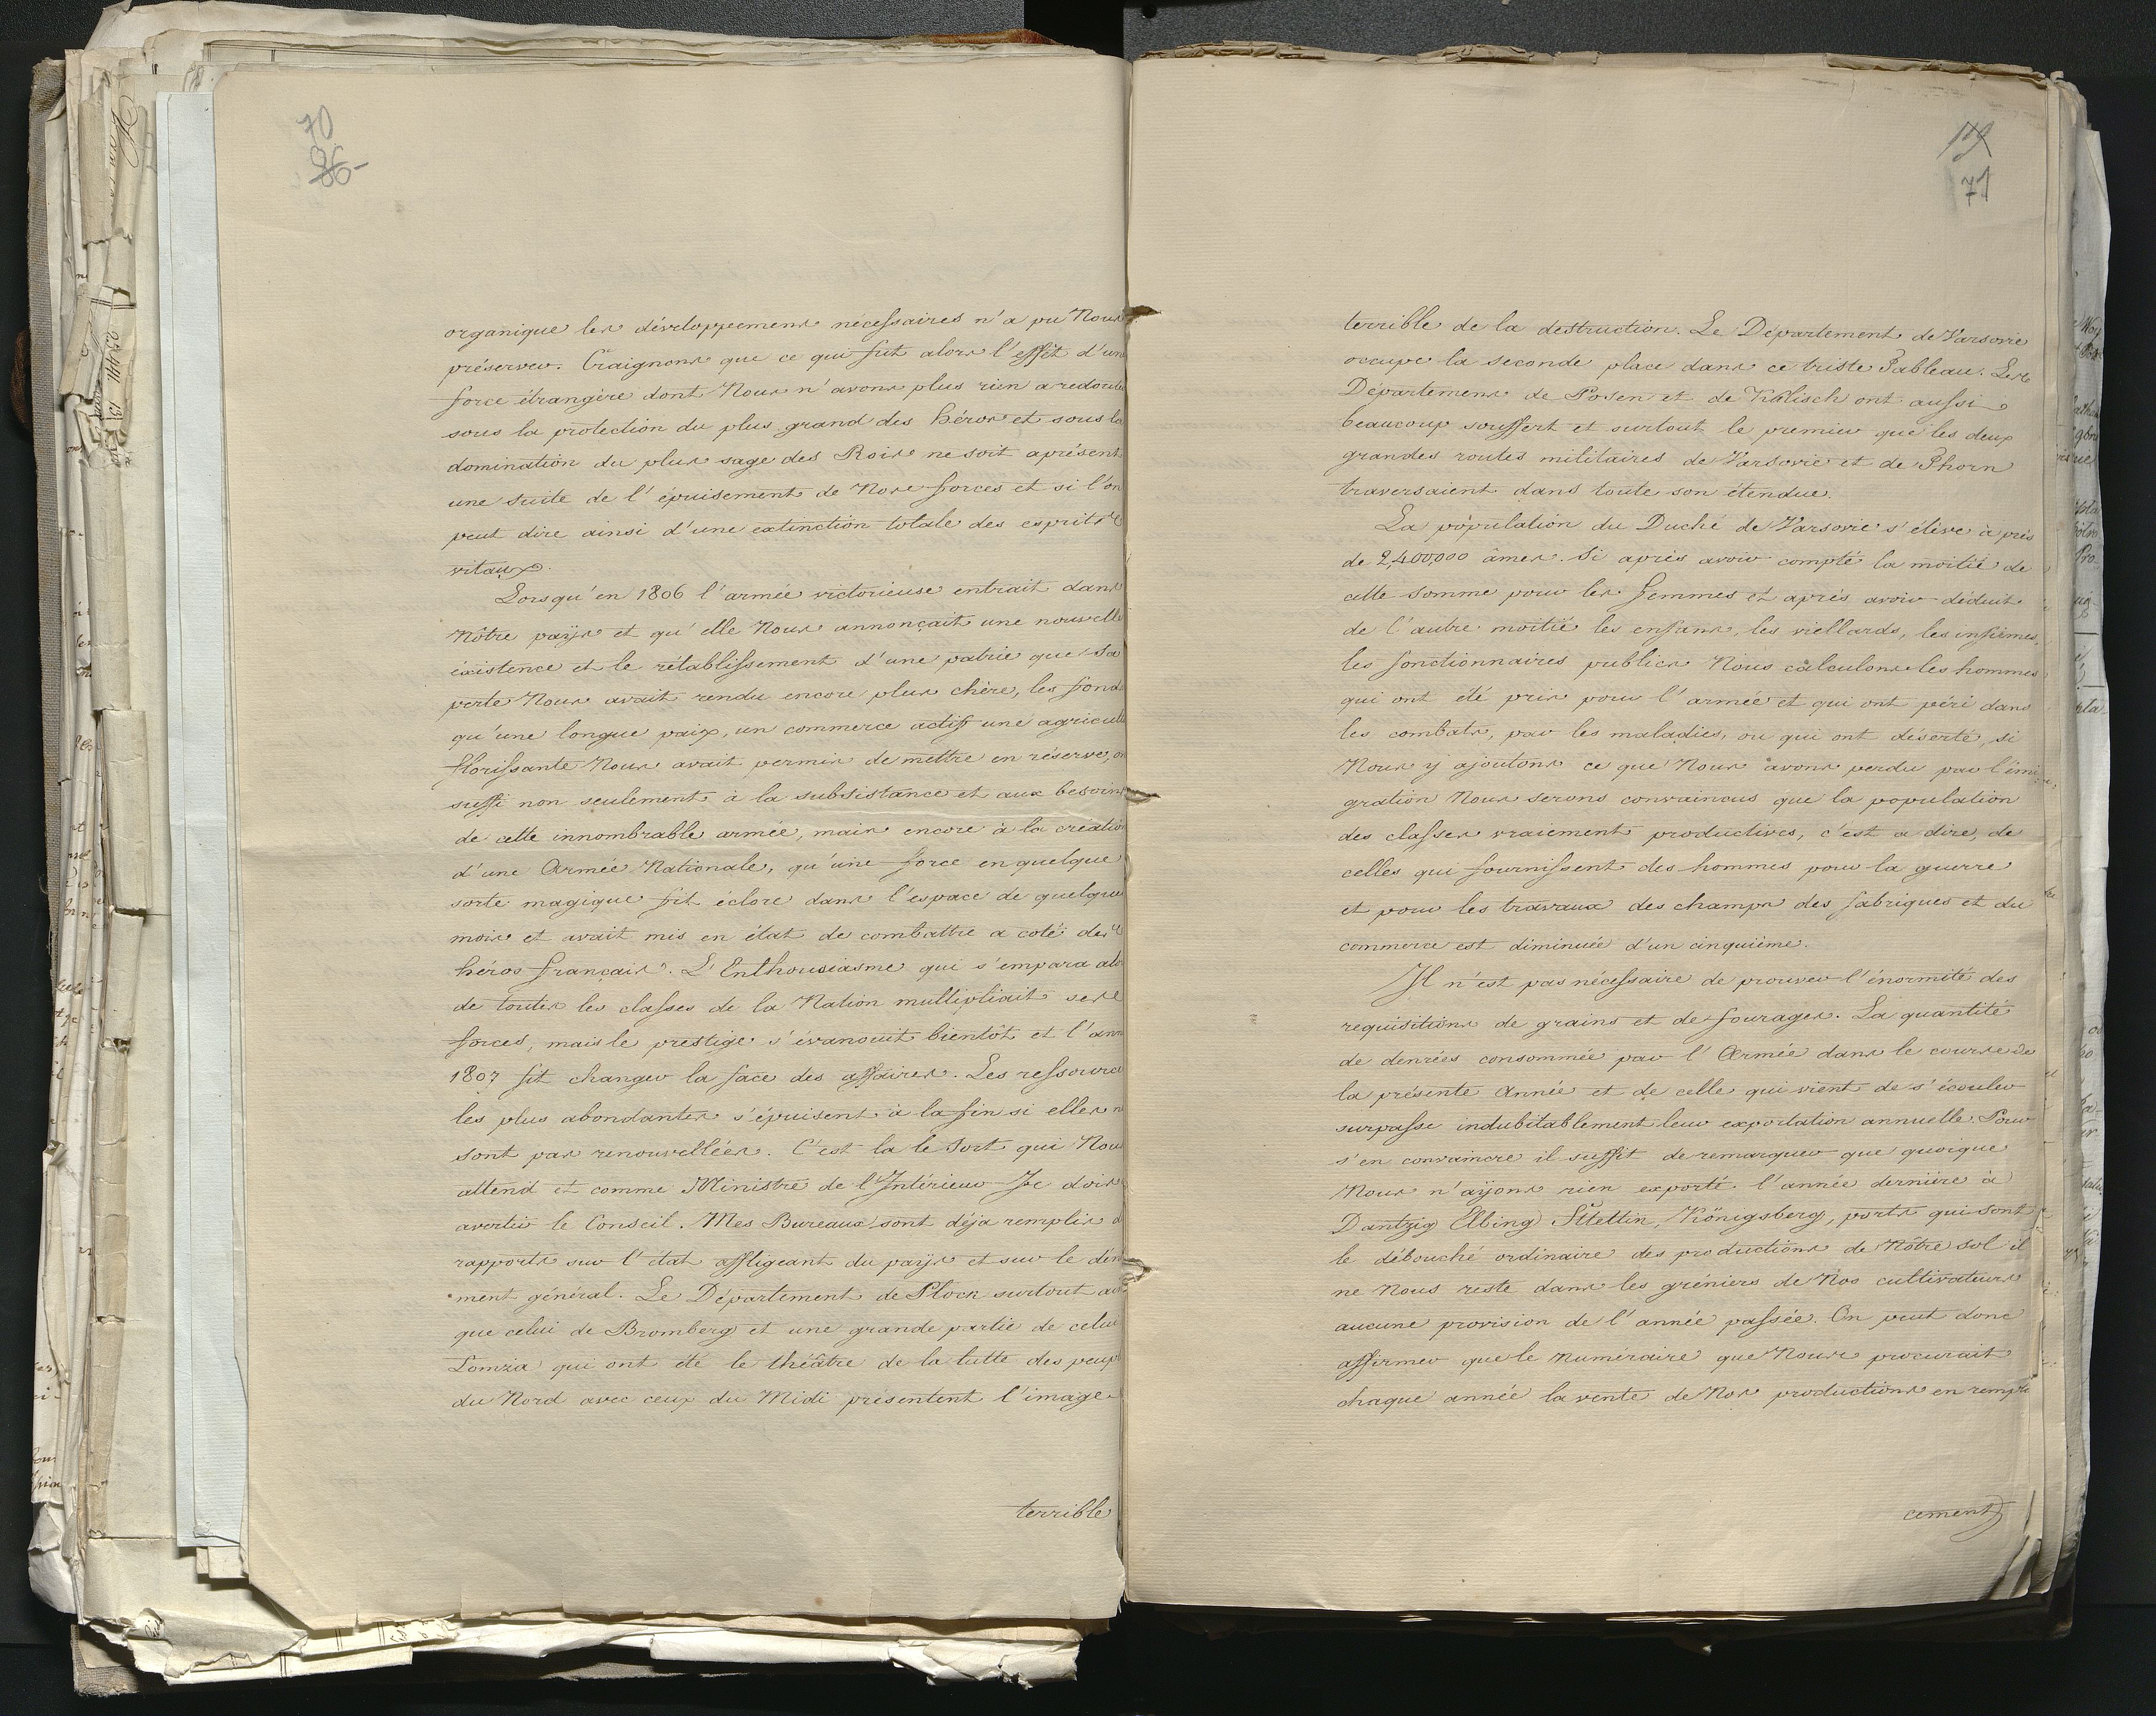 70
86
organique les développemens nécessaires n'a pu Nous
préserver. Craignons que ce qui fut alors l'effêt d'une
force étrangère dont Nous n'avons plus rien a redouter
sous la protection du plus grand des héros et sous la
domination du plus sage des Rois ne soit aprésent
une suite de l'épuisement de Nos forces et si l'on
peut dire ainsi d'une extinction totale des esprits
vitaux.
Lorsqu'en 1806 l'armée victorieuse entrait dans
Nôtre païs et qu'elle Nous annonçait une nouvelle
existence et le rétablissement d'une patrie que sa
perte Nous avait rendu encore plus chère, les fonds
qu'une longue paix, un commerce actif une agricult
florissante Nous avait permis de mettre en réserve, on
suffi non seulement à la subsistance et aux besoins
de cette innombrable armée, mais encore à la création
d'une Armée Nationale, qu'une force en quelque
sorte magique fit éclore dans l'espace de quelques
mois et avait mis en état de combattre a coté des
héros français. L'Enthousiasme qui s'empara alo
de toutes les classes de la Nation multipliait ses
forces, mais le prestige s'évanouit bientôt et l'ann
1807 fit changer la face des affaires. Les ressource
les plus abondantes s'épuisent à la fin si elles n
sont pas renouvellées. C'est la le Sort qui Nous
attend et comme Ministre de l'Intérieur Je dois
avertir le Conseil. Mes Bureaux sont déja remplis d
rapports sur l'état affligeant du païs et sur le dén
ment général. Le Département de Plock surtout
que celui de Bromberg et une grande partie de celui
Lomza qui ont été le théâtre de la lutte des peupl
du Nord avec ceux du Midi présentent l'image
terrible
71
terrible de la destruction. Le Département de Varsovie
occupe la seconde place dans ce triste Tableau. Les
Départemens de Posen et de Kalisch ont aussi
beaucoup souffert et surtout le premier que les deux
grandes routes militaires de Varsovie et de Thorn
traversaient dans toute son étendue.
La population du Duché de Varsovie s'élève à près
de 2,400,000 âmes. Si après avoir compté la moitié de
cette somme pour les femmes et après avoir déduit
de l'autre moitié les enfans, les viellards, les infirmes,
les fonctionnaires publics Nous calculons les hommes
qui ont été pris pour l'armée et qui ont péri dans
les combats, par les maladies, ou qui ont déserté, si
Nous y ajoutons ce que Nous avons perdu par l'émi
gration Nous serons convaincus que la population
des classes vraiement productives, c'est a dire, de
celles qui fournissent des hommes pour la guerre
et pour les travaux des champs des fabriques et du
commerce est diminuée d'un cinquième.
Il n'est pas nécessaire de prouver l'énormité des
requisitions de grains et de fourages. La quantité
de denrées consommée par l'Armée dans le cours de
la présente Année et de celle qui vient de s'écouler
surpasse indubitablement leur exportation annuelle. Pour
s'en convaincre il suffit de remarquer que quoique
Nous n'aÿons rien exporté l'année dernière à
Dantzig Elbing Stettin, Königsberg, ports qui sont
le débouché ordinaire des productions de Nôtre sol il
ne Nous reste dans les gréniers de Nos cultivateurs
aucune provision de l'année passée. On peut donc
affirmer que le Numéraire que Nous procurait
chaque année la vente de Nos productions en rempla
cement